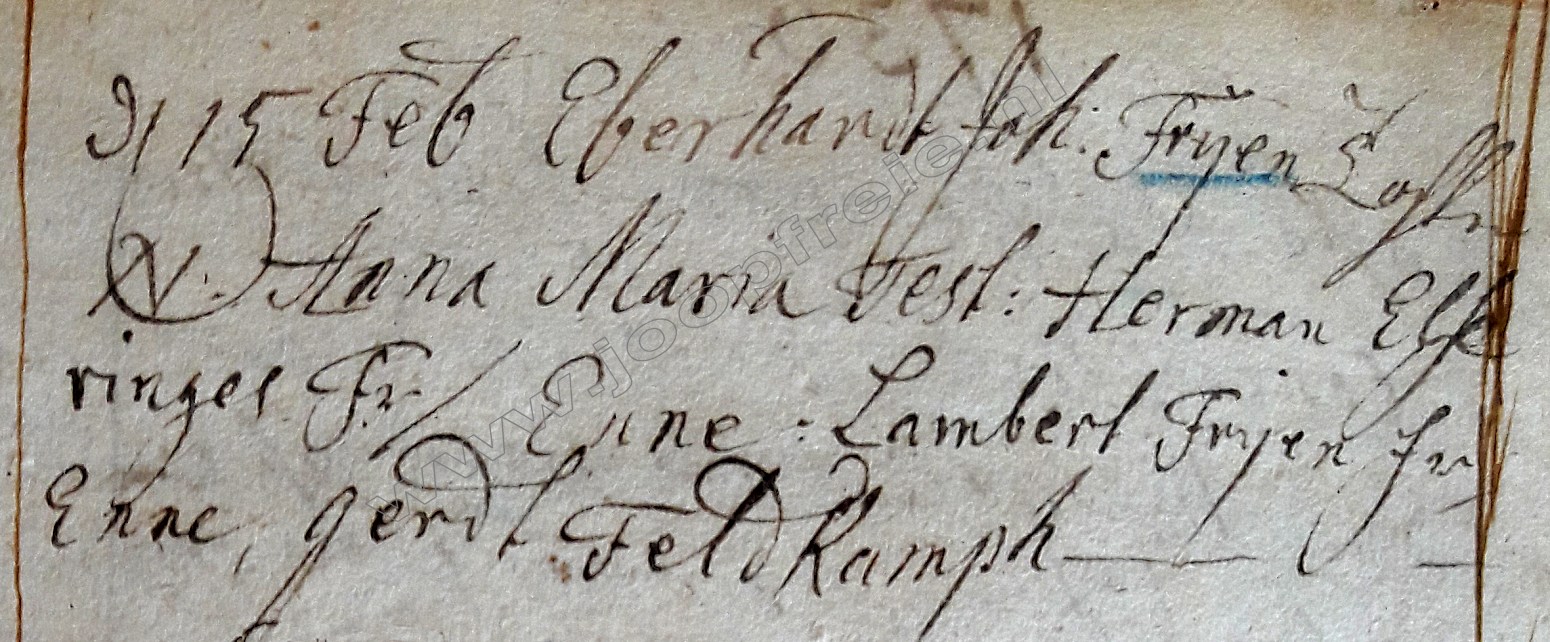 15 Feb Eberhardt Joh: Fryen Tochter
N. Anna Maria Test: Herman Elfe
ringes Fr. Enne: Lambert Fryen Fr.
Enne, gerdt Feldkamph
www.joopfreie.nl